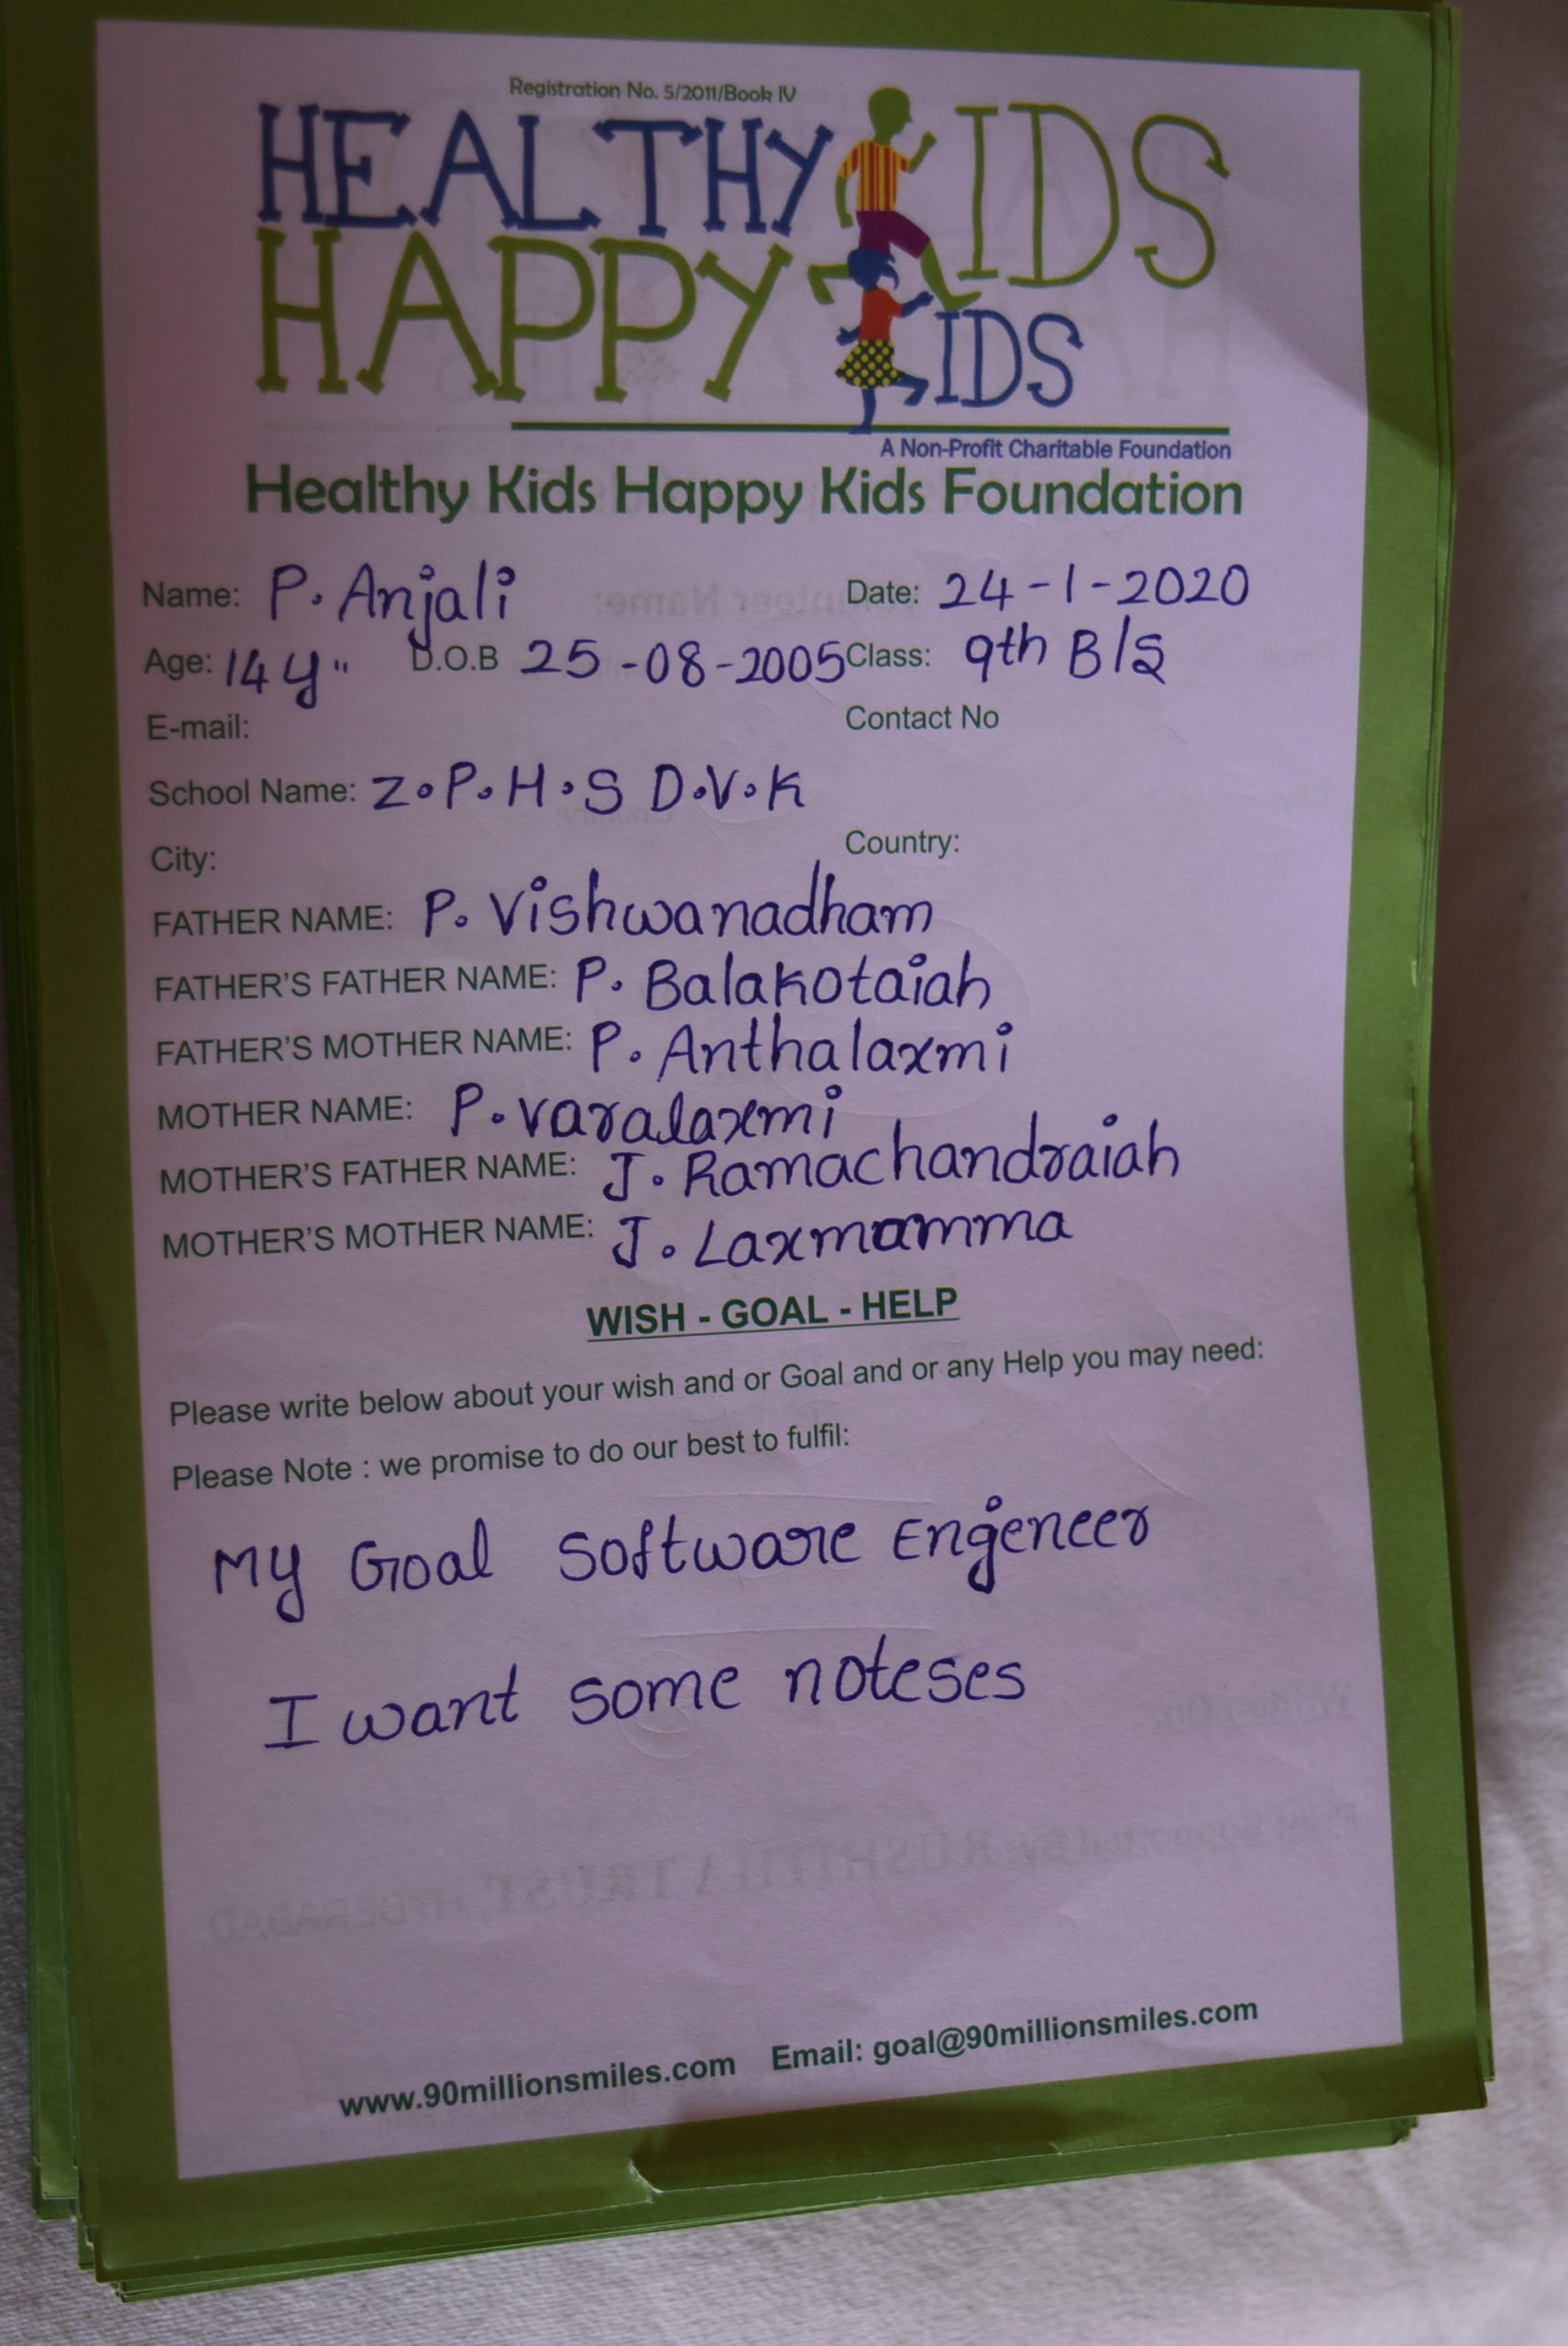 Registration No. 5/2011/Book IV
HEALTHY KIDS
HAPPY KIDS
A Non-Profit Charitable Foundation
Healthy Kids Happy Kids Foundation
Name: P. Anjali Date: 24-1-2020
Age: 14 y" D.O.B 25-08-2005 Class: 9th B/S
E-mail: Contact No
School Name: Z.P.H.S D.V.K
City: Country:
FATHER NAME: P. Vishwanadham
FATHER'S FATHER NAME: P. Balakotaiah
FATHER'S MOTHER NAME: P. Anthalaxmi
MOTHER NAME: P. Varalaxmi
MOTHER'S FATHER NAME: J. Ramachandraiah
MOTHER'S MOTHER NAME: J. Laxmamma
WISH - GOAL - HELP
Please write below about your wish and or Goal and or any Help you may need:
Please Note : we promise to do our best to fulfil:
My Goal Software Engeneer
I want some noteses
www.90millionsmiles.com Email: goal@90millionsmiles.com